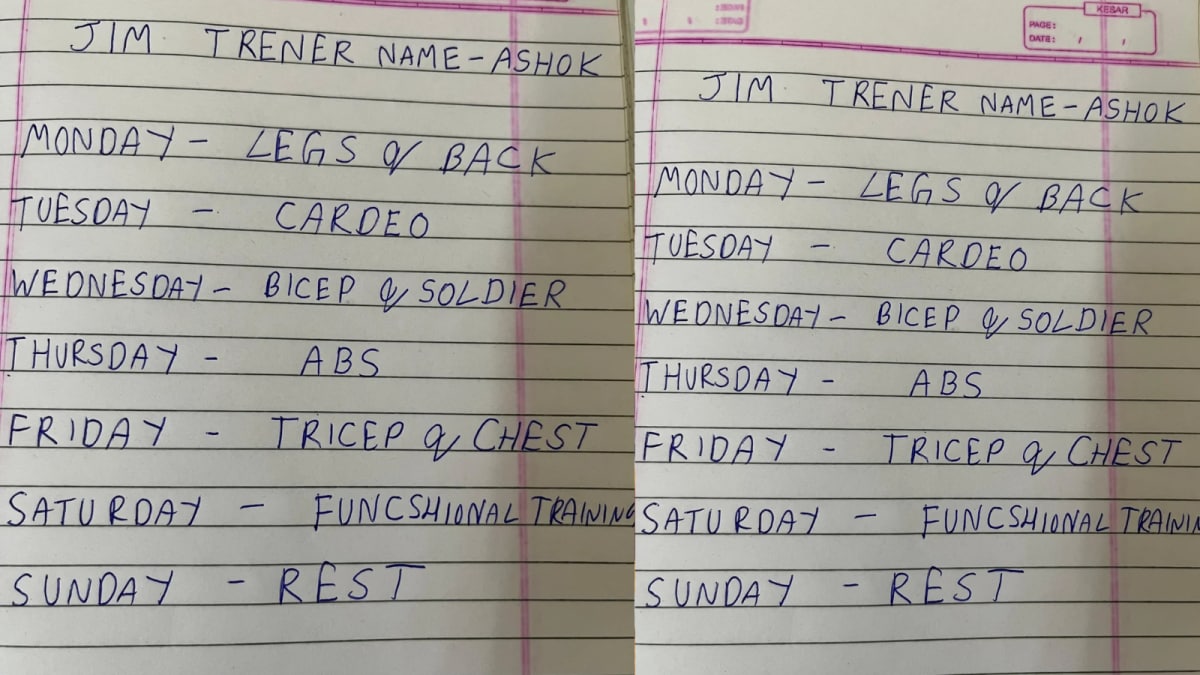 JIM TRENER NAME - ASHOK
MONDAY - LEGS & BACK
TUESDAY - CARDEO
WEDNESDAY - BICEP & SOLDIER
THURSDAY - ABS
FRIDAY - TRICEP & CHEST
SATURDAY - FUNCSHIONAL TRAINING
SUNDAY - REST
KESAR
PAGE:
DATE: / /
JIM TRENER NAME - ASHOK
MONDAY - LEGS & BACK
TUESDAY - CARDEO
WEDNESDAY - BICEP & SOLDIER
THURSDAY - ABS
FRIDAY - TRICEP & CHEST
SATURDAY - FUNCSHIONAL TRAININ
SUNDAY - REST